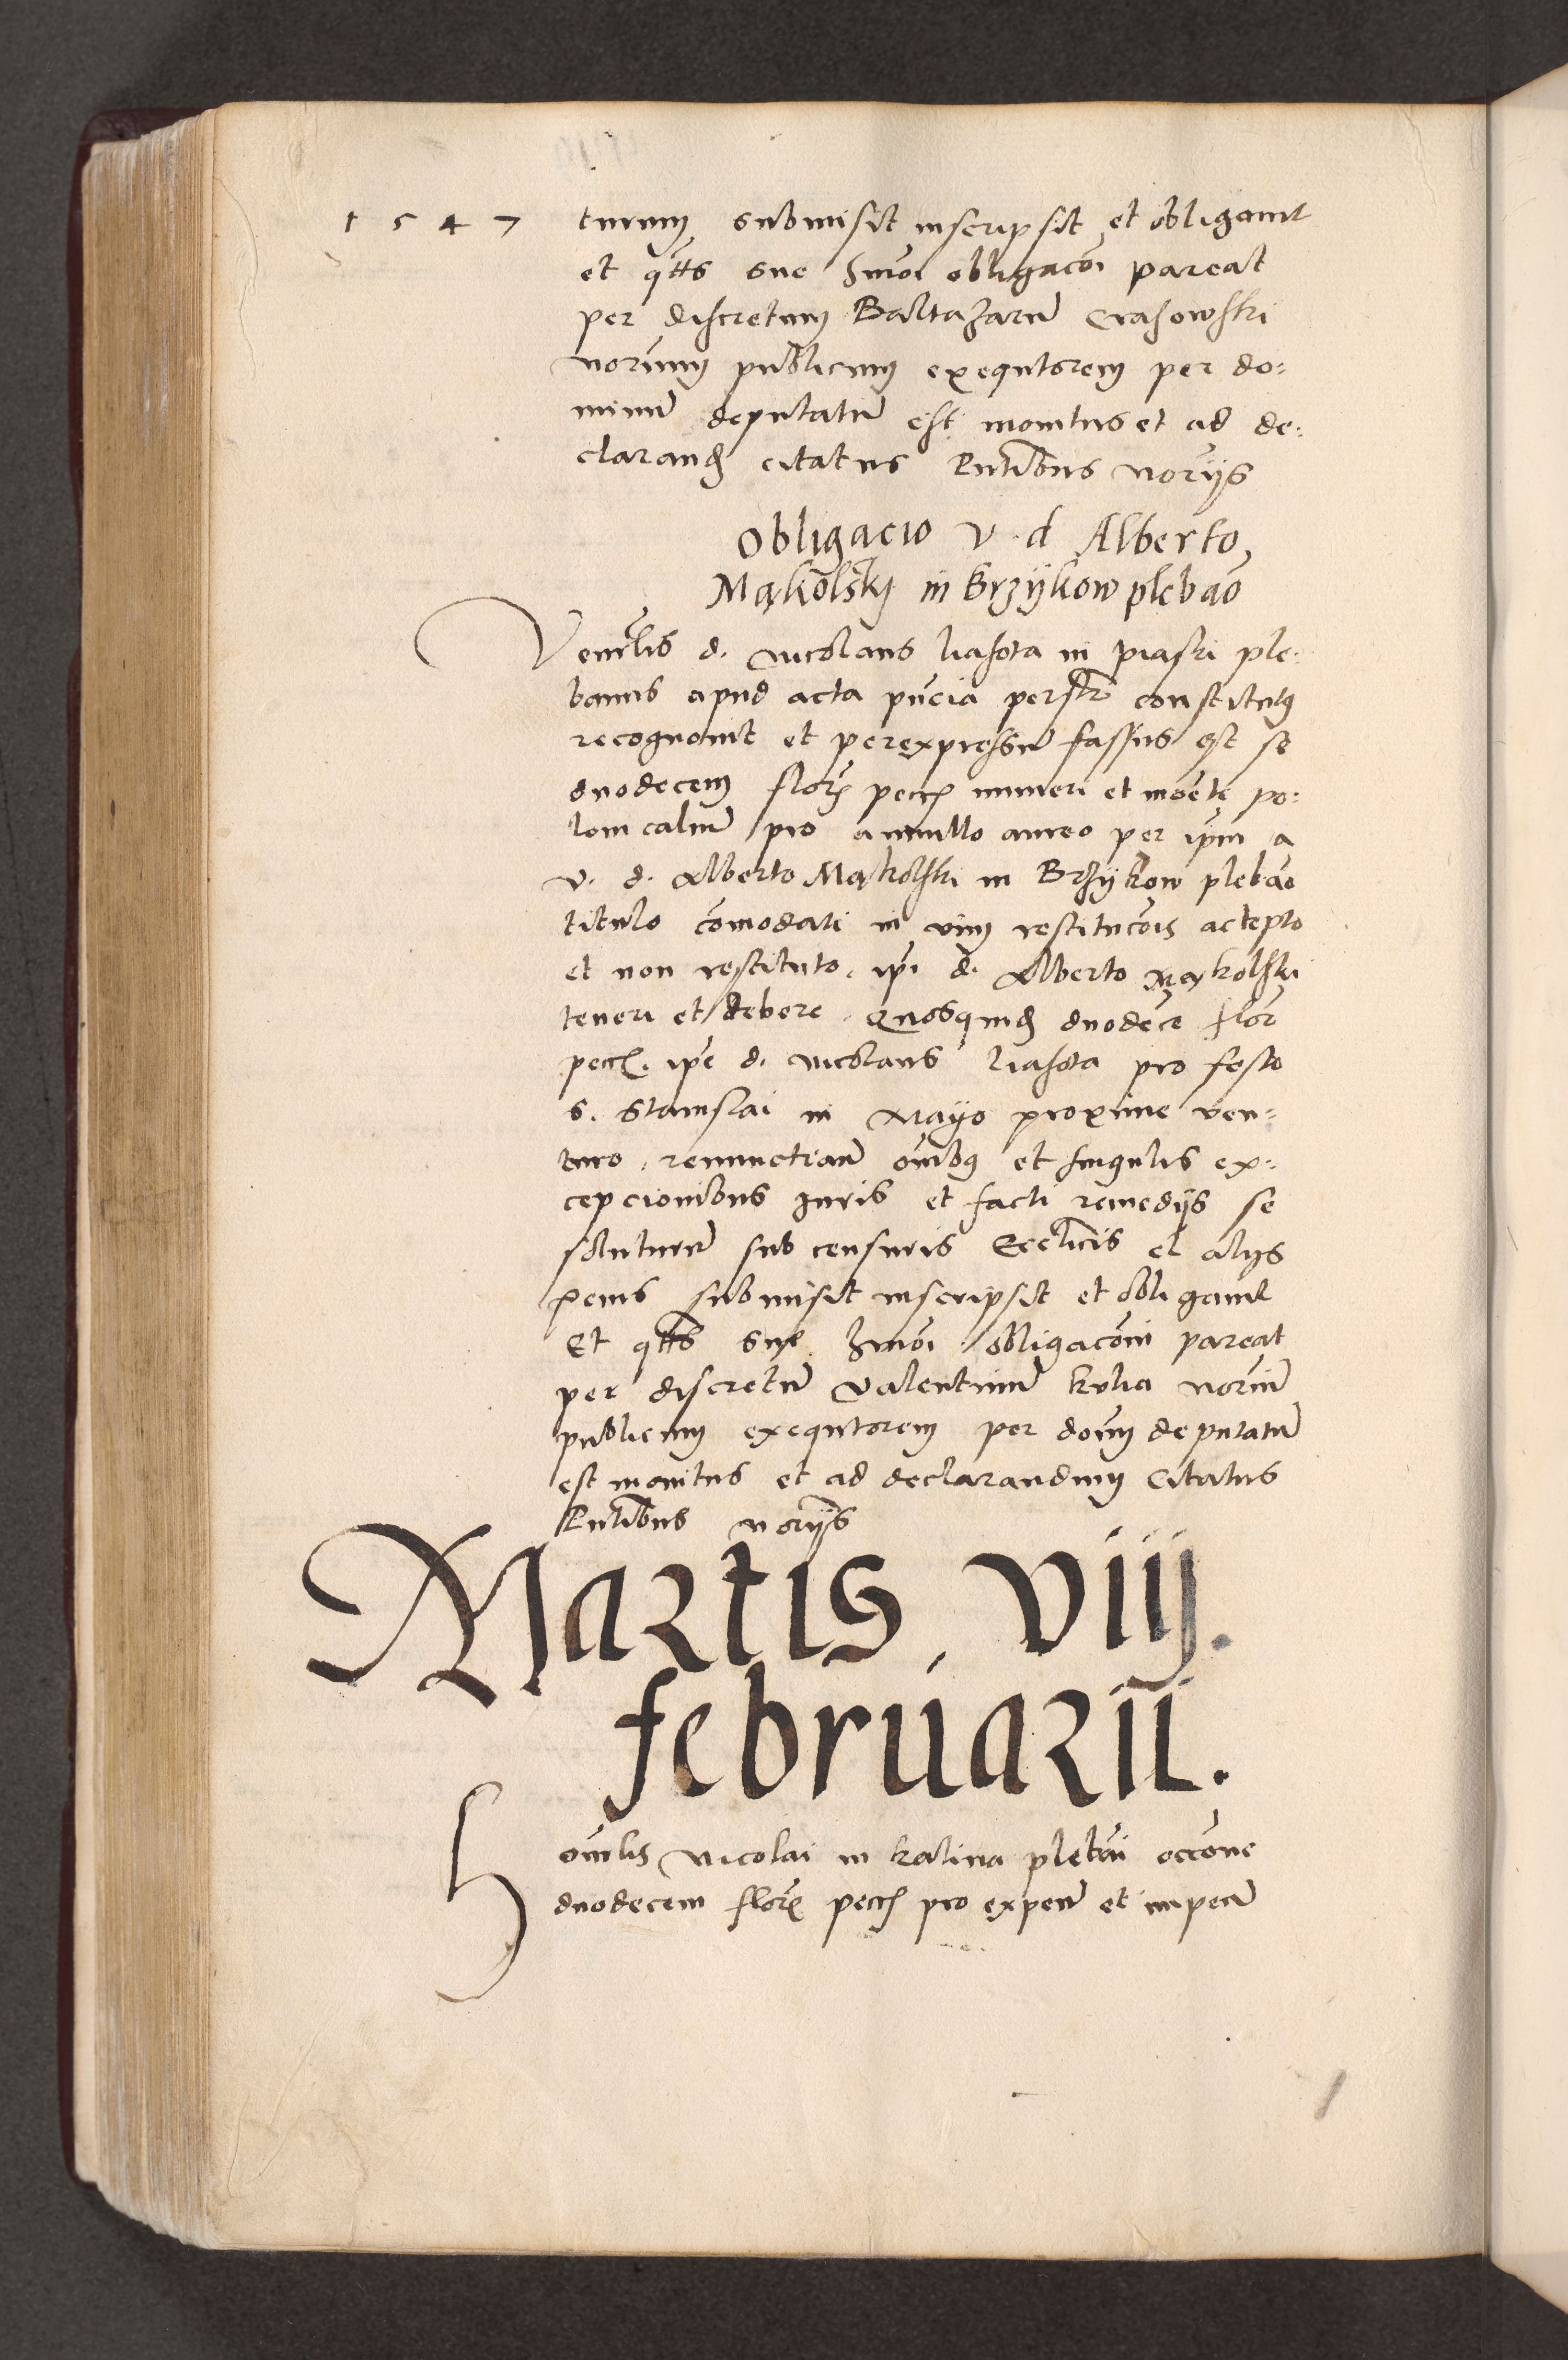 1547
turum submisit inscripsit et obligavit
et qtts sue hmoi obligacoi pareat
per discretum Baltazarum Crasowski
norium publicum exequtorem per do:
minum deputatum est monitus et ad de:
clarand citatus Pntibus noriis
Obligacio v. d Alberto
Mąkolskj in Brzijkow plebao
Venerlis d. Nicolaus liasota in piaski ple:
banus apud acta pncia personlr constitutus
recognovit et per expressum fassus est se
duodecem flor pecc numeri et monete po:
lonicalium pro annullo aureo per ipm a
v. d. Alberto Mąkolski in Brzijkow plebao
titulo comodati in vim restitucois accepto
et non restituto, ipi d. Alberto Mąkolski
teneri et debere. Quosquid duodece flor
pecc. ipe d. Nicolaus liasota pro festo
S. Stanislai in Mayo proxime ven:
turo, renunctiam oibus et singulis ex:
cepcionibus Juris et facti remediis se
soluturum sub censuris Ecclicis et aliis
penis submisit inscripsit et obligavit
Et qtts sue hmoi obligaconi pareat
per discretum Valentinum kulia norium
publicum exequtorem per doum deputatum
est monitus et ad declarandum citatus
Pntibus noriis
Martis, viij.
februarii.
Honlis Nicolai in kalina plebani occone
duodecem flor pecc pro expen et impen